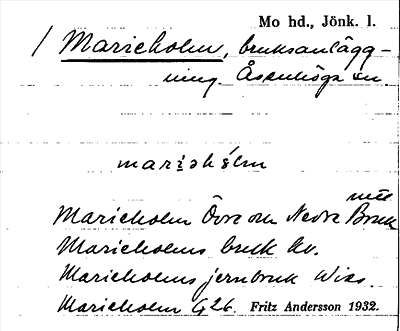 Mo hd., Jönk. l.
/ Marieholm, bruksanlägg-
ning. Åsenhöga sn
mariəhólm
Marieholm Övra och Nedra Bruk
Marieholms bruk
Marieholms jernbruk Wixs.
Marieholm G26. Fritz Andersson 1932.